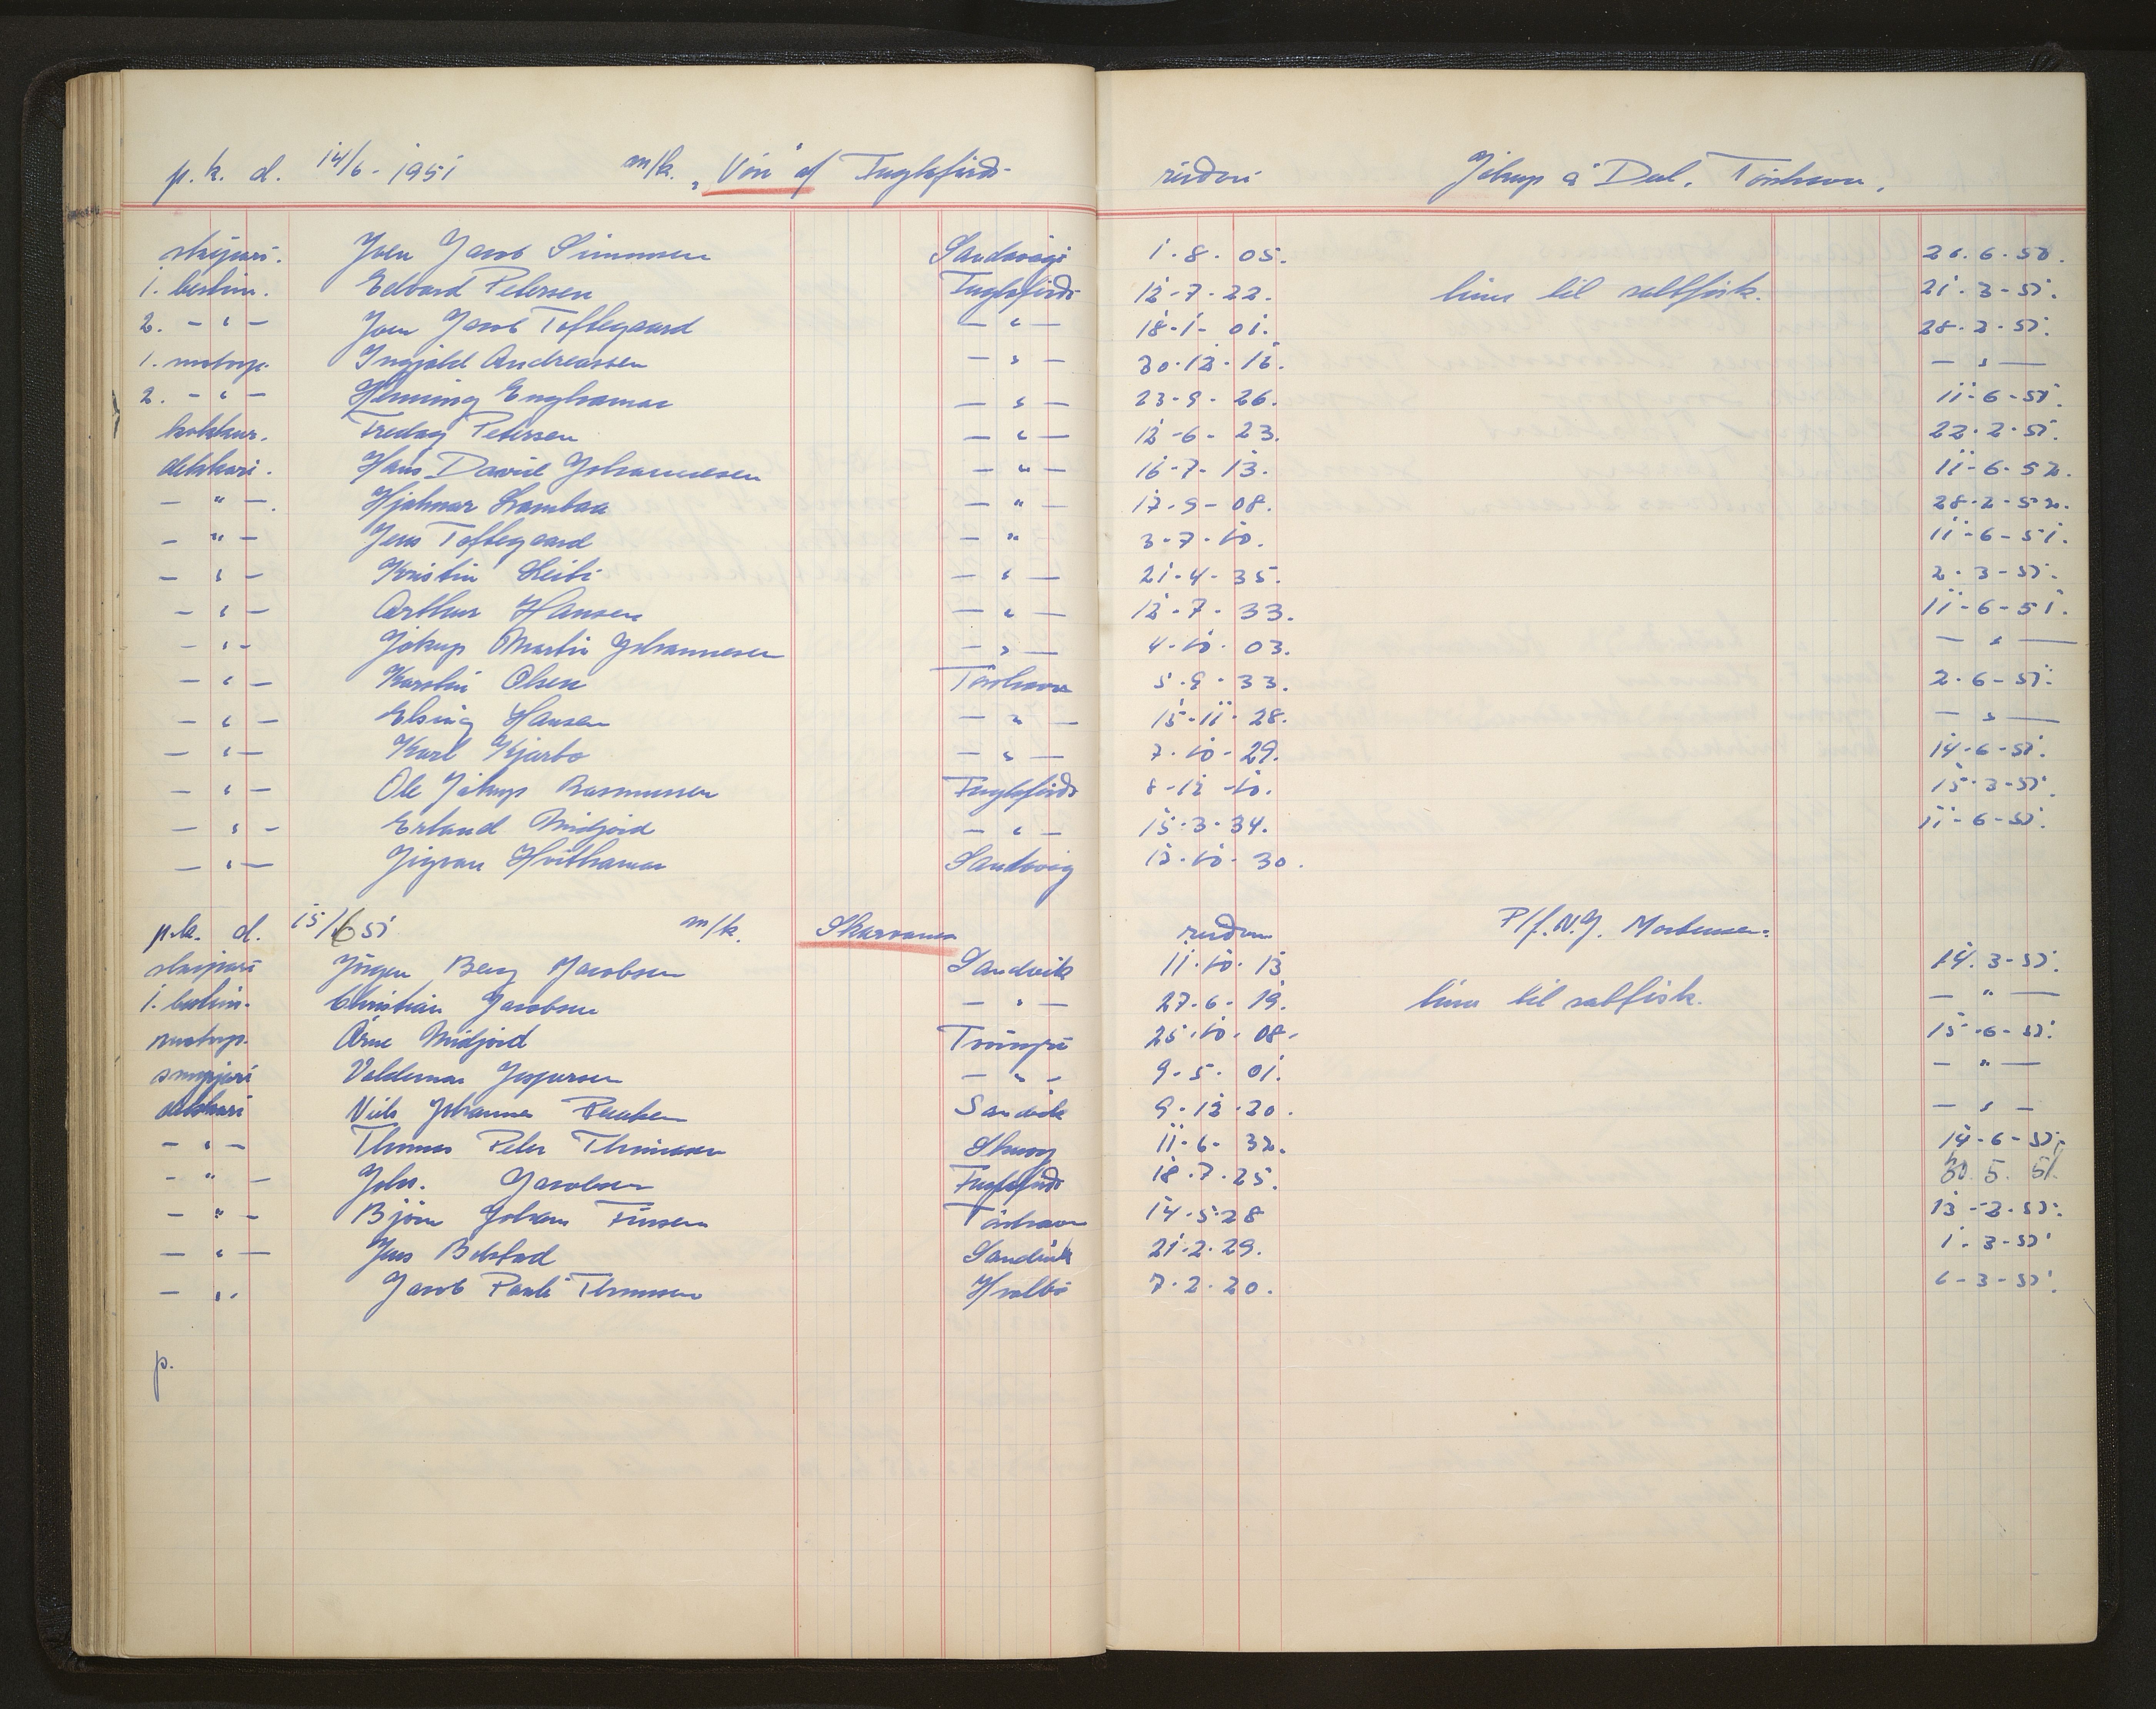 p.k. d. 14/6-1951 m/k. „Vón" af Fuglafirdi reidari Jákup á Dul. Tórshavn.
skipari. Joen Jacob Simonsen Sandavági 1.8.05. 26.6.50.
1. bestim. Edvard Petersen Fuglafirdi 12-7-22. línu til saltfisk. 21-3-51.
2. - " - Joen Jacob Toftegaard - " - 18-1-01. 28-2-51.
1. motorp. Ingjald Andreassen - " - 30.12.16. - " -
2. - " - Henning Enghamar - " - 23-9-26. 11-6-51.
kokkur. Freday Petersen - " - 12-6-23. 22.2.51.
dekkari. Hans David Johannesen - " - 16-7-13. 11-6-52.
- " - Hjalmar Lambaa - " - 17-9-08. 28-2-52.
- " - Jens Toftegaard - " 3-7-10. 11-6-51.
- " - Kristin Leibi - " - 21-4-35. 2-3-51.
- " - Arthur Hansen - " - 12-7-33. 11-6-51.
- " - Jákup Martin Johannesen - " - 4-10-03. - " -
- " - Karstin Olsen Tórshavn 5.9.33. 2.6-51.
- " - Elsing Hansen - " - 15-11-28. - " -
- " - Karl Kjærbo - " - 7.10-29. 14-6-51.
- " - Ole Jákup Rasmussen Fuglafirdi 8-12-10. 15-3-51.
- " - Erland Midjord - " - 15-3-34. 11-6-51.
- " - Jógvan Hvithamar Sandvig 12.10.30.
p.k. d. 15/6 51 m/k. Skarvanes reidari P/f. N.J. Mortensen.
skipari Jógvan Berg Jacobsen Sandvik 11.10.13 14.3-51.
1. bestim. Christian Jacobsen - " - 27.6.19. línu til saltfisk. - " -
motorp. Arne Midjord Tvöroyri 25.10.08. 15-6-51.
smyrjari Valdemar Jespersen - " - 9.5.01. - " -
dekkari Niels Johannes Sandvik 9.12.20. - " -
- " - Thomas Peter Thomsen 11-6-32. 14-6-51.
- " - Johs. Jacobsen Fuglafirdi 18.7.25. 30.5.51.
- " - Björn Johan Finsen Tórshavn 14.5.28 13-2.51.
- " - Jens Belstad Sandvik 21.2.29. 1-3-51
- " - Jacob Pauli Thomsen Hvalbö 7.2.20. 6-3-51.
p.